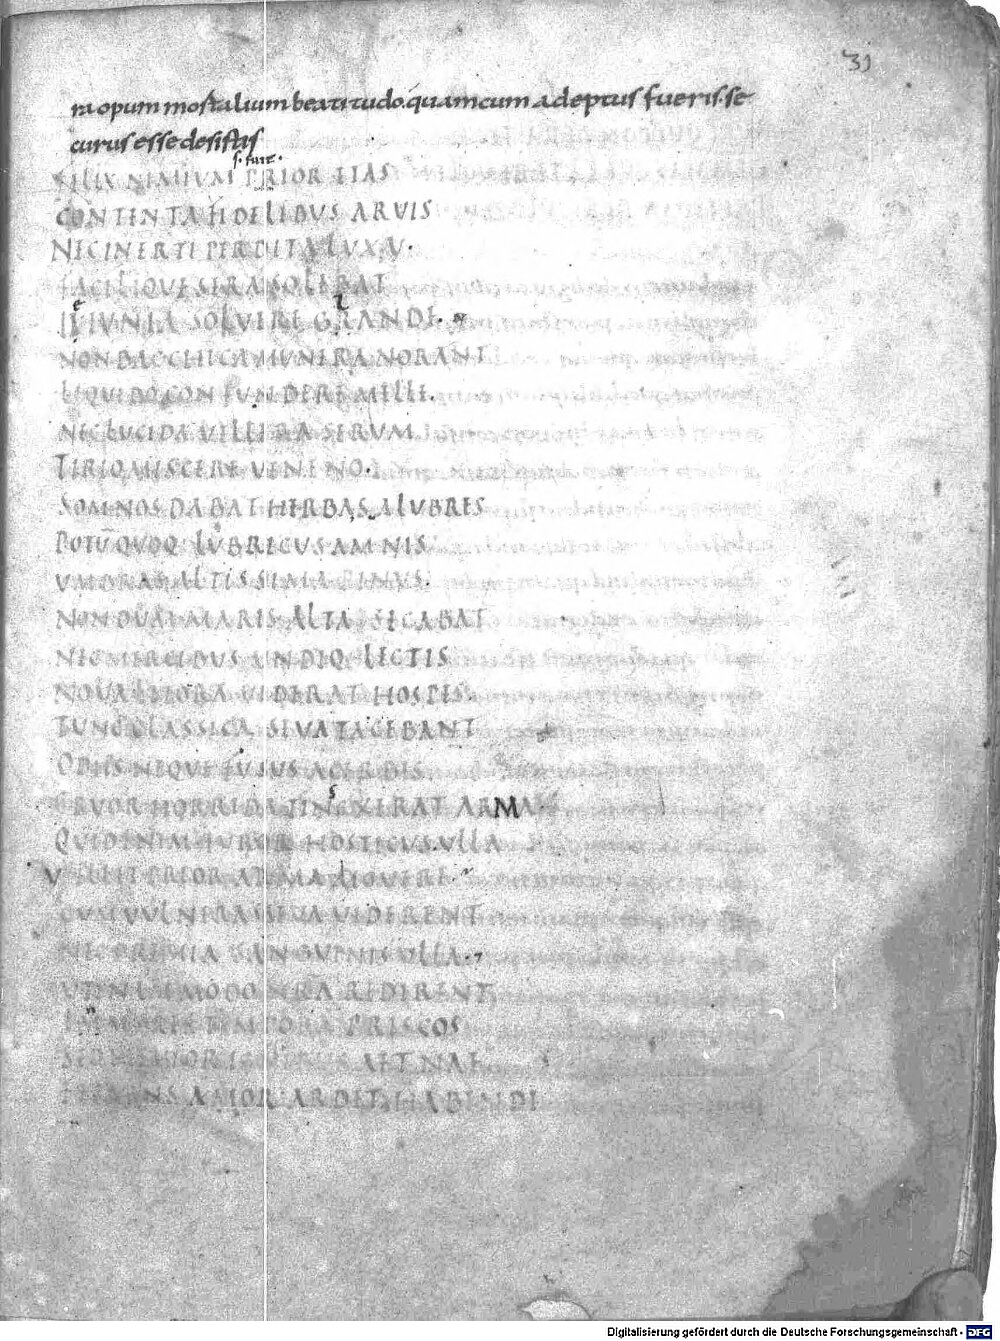 31
ra opum mortalium beatitudo. quam cum adeptus fueris. se
curus esse desistis
s. fuit.
FELIX NIMIUM PRIOR ETAS
CONTENTA FIDELIBUS ARVIS
NEC INERTI PERDITA LUXU.
FACILI QUE SERA SOLEBAT
IEIUNIA SOLVERE GLANDE.
NON BACCHICA MUNERA NORANT
LIQUIDO CONFUNDERE MELLE.
NEC LUCIDA VELLERA SERUM
TIRIO MISCERE VENENO.
SOMNOS DABAT HERBA SALUBRES
POTŪ QUOQ LUBRICUS AMNIS
UMBRAS ALTISSIMA PINUS.
NONDUM MARIS ALTA SECABAT
NEC MERCIBUS UNDIQ LECTIS
NOVA LITORA VIDERAT HOSPES.
TUNC CLASSICA SEVA TACEBANT
ODIIS NEQUE FUSUS ACERBIS
CRUOR HORRIDA TINXERAT ARMA
QUID ENIM FUROR HOSTICUS ULLA
VELLET PRIOR ARMA MOVERE
CUM VULNERA SEVA VIDERENT
NEC PREMIA SANGUINIS ULLA.
UTINAM MODO NRA REDIRENT
IN MORES TEMPORA PRISCOS
SED SEVIOR IGNIBUS AETNAE
FERVENS AMOR ARDET HABENDI
Digitalisierung gefördert durch die Deutsche Forschungsgemeinschaft - DFG